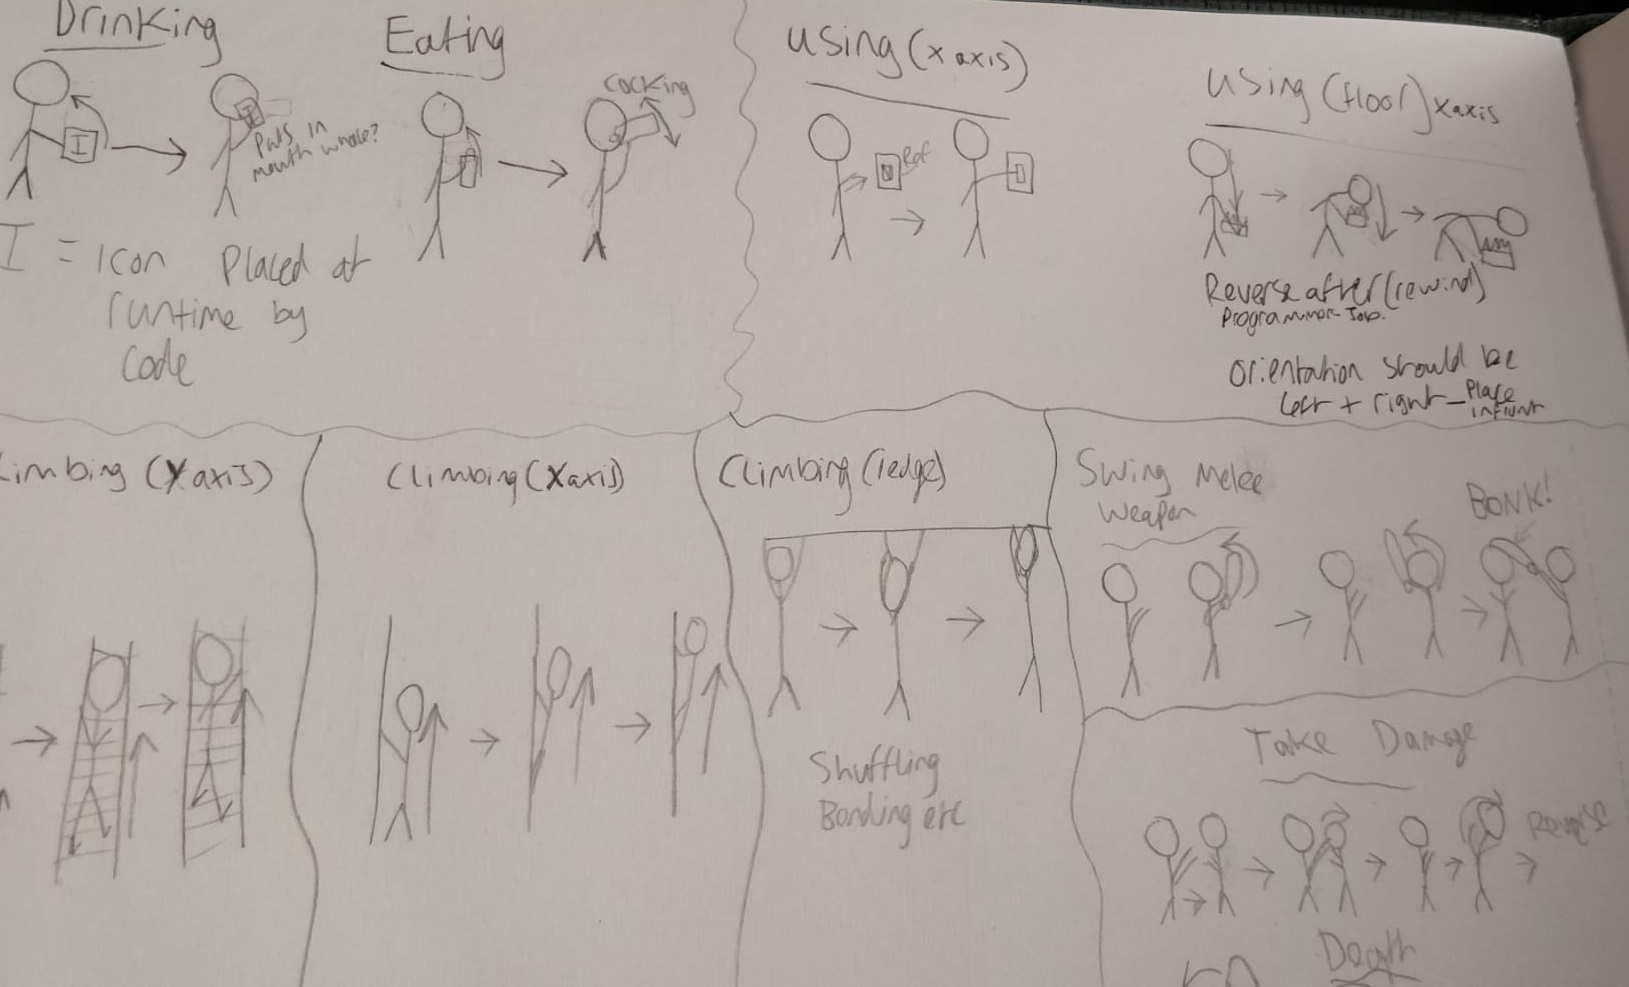 Drinking
I
I
Puts in
mouth whole?
I = Icon placed at
runtime by
code
Eating
cocking
using (x axis)
using (floor) x axis
Reverse after (rewind)
Programmer Job.
Orientation should be
left + right - Place
infront
Limbing (Y axis)
Climbing (X axis)
Climbing (ledge)
Shuffling
Bending etc
Swing Melee
Weapon
BONK!
Take Damage
Reverse
Death